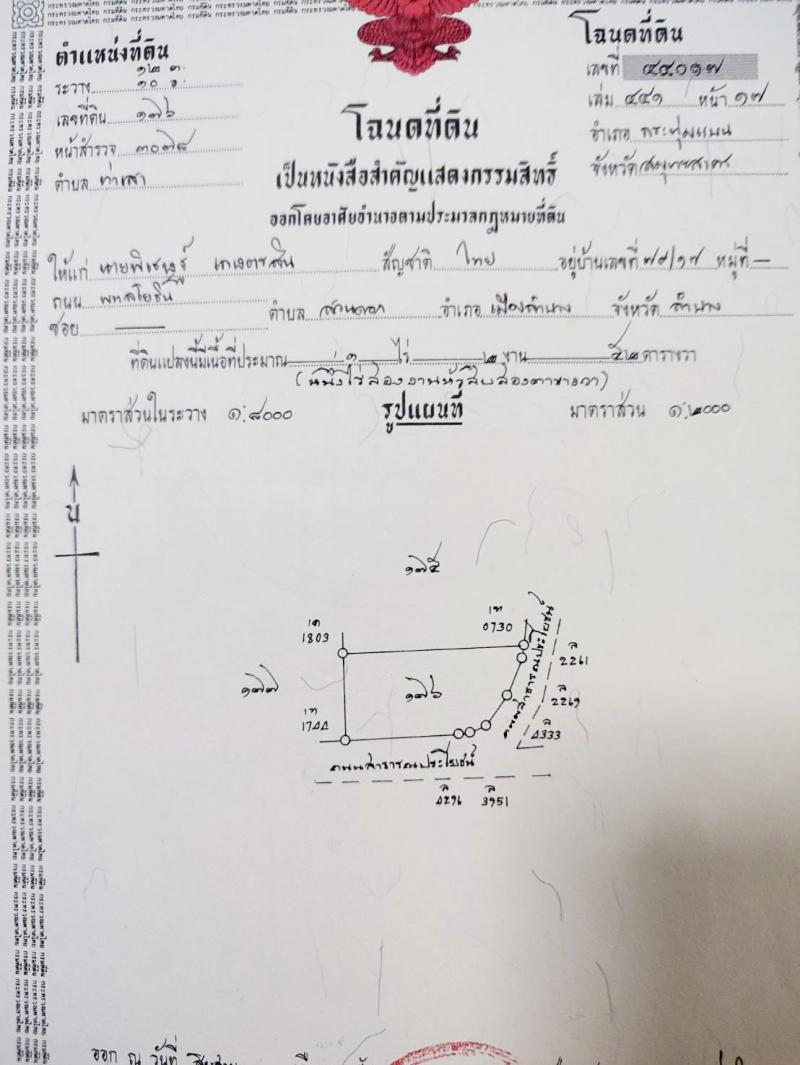 ตำแหน่งที่ดิน
ระวาง ๑๐
เลขที่ดิน ๑๗๖
หน้าสำรวจ ๓๐๗๘
ตำบล ท่าเสา
โฉนดที่ดิน
เลขที่ ๔๔๐๑๗
เล่ม ๔๔๑ หน้า ๑๗
อำเภอ กระทุ่มแบน
จังหวัด สมุทรสาคร
โฉนดที่ดิน
เป็นหนังสือสำคัญแสดงกรรมสิทธิ์
ออกโดยอาศัยอำนาจตามประมวลกฎหมายที่ดิน
ให้แก่ นาย สัญชาติ ไทย อยู่บ้านเลขที่ ๗๙/๑๗ หมู่ที่ —
ถนน พหลโยธิน ตำบล สวนดอก อำเภอ เมืองลำปาง จังหวัด ลำปาง
ซอย —
ที่ดินแปลงนี้มีเนื้อที่ประมาณ ๑ ไร่ ๒ งาน ๕๒ ตารางวา
(หนึ่งไร่สองงานห้าสิบสองตารางวา)
มาตราส่วนในระวาง ๑:๔๐๐๐ รูปแผนที่ มาตราส่วน ๑:๒๐๐๐
น
๑๗๕
1803
0730
๑๗๗
๑๗๖
ถนนสาธารณประโยชน์
ล
2261
ล
2269
ล
4333
1744
ถนนสาธารณประโยชน์
ล
4296
ล
3951
ออก ณ วันที่